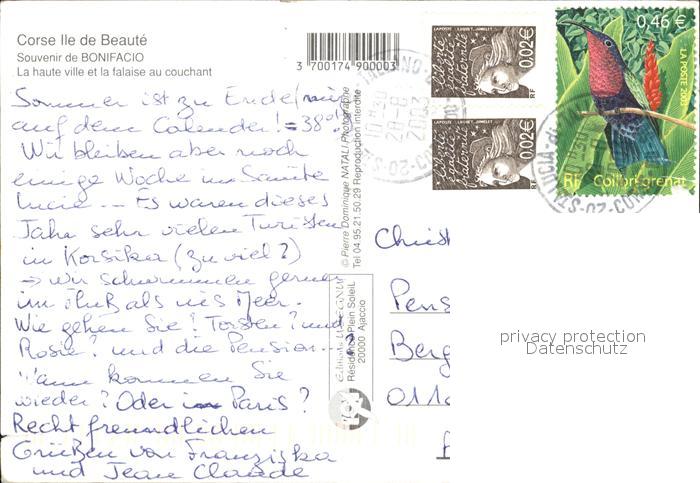 Corse Ile de Beauté
Souvenir de BONIFACIO
La haute ville et la falaise au couchant
3 700174 900003
Sommer ist zu Ende (nur
auf dem Calender! = 38°!
Wir bleiben aber noch
einige Woche in Sainte
Lucie... Es waren dieses
Jahr sehr vielen Turisten
in Korsika (zu viel?)
→ wir schwimmen gerner
im Fluß als ins Meer.
Wie gehen Sie? Torsten? und
Rosie? und die Pension...?
Wann kommen Sie
wieder? Oder in Paris?
Recht freundlichen
Grüßen von Franziska
und Jean Claude
© Pierre Dominique NATALI Photographe
Tel 04.95.21.50.29 Reproduction interdite
Résidence Plein Soleil
20000 Ajaccio
LA POSTE LUQUET, JUMELET
Liberté Égalité Fraternité
0,02€
RF
LA POSTE LUQUET, JUMELET
Liberté Égalité Fraternité
0,02€
RF
0,46 €
LA POSTE 2003
RF Colibri grenat
Christ
Pens
Berg
011
privacy protection
Datenschutz